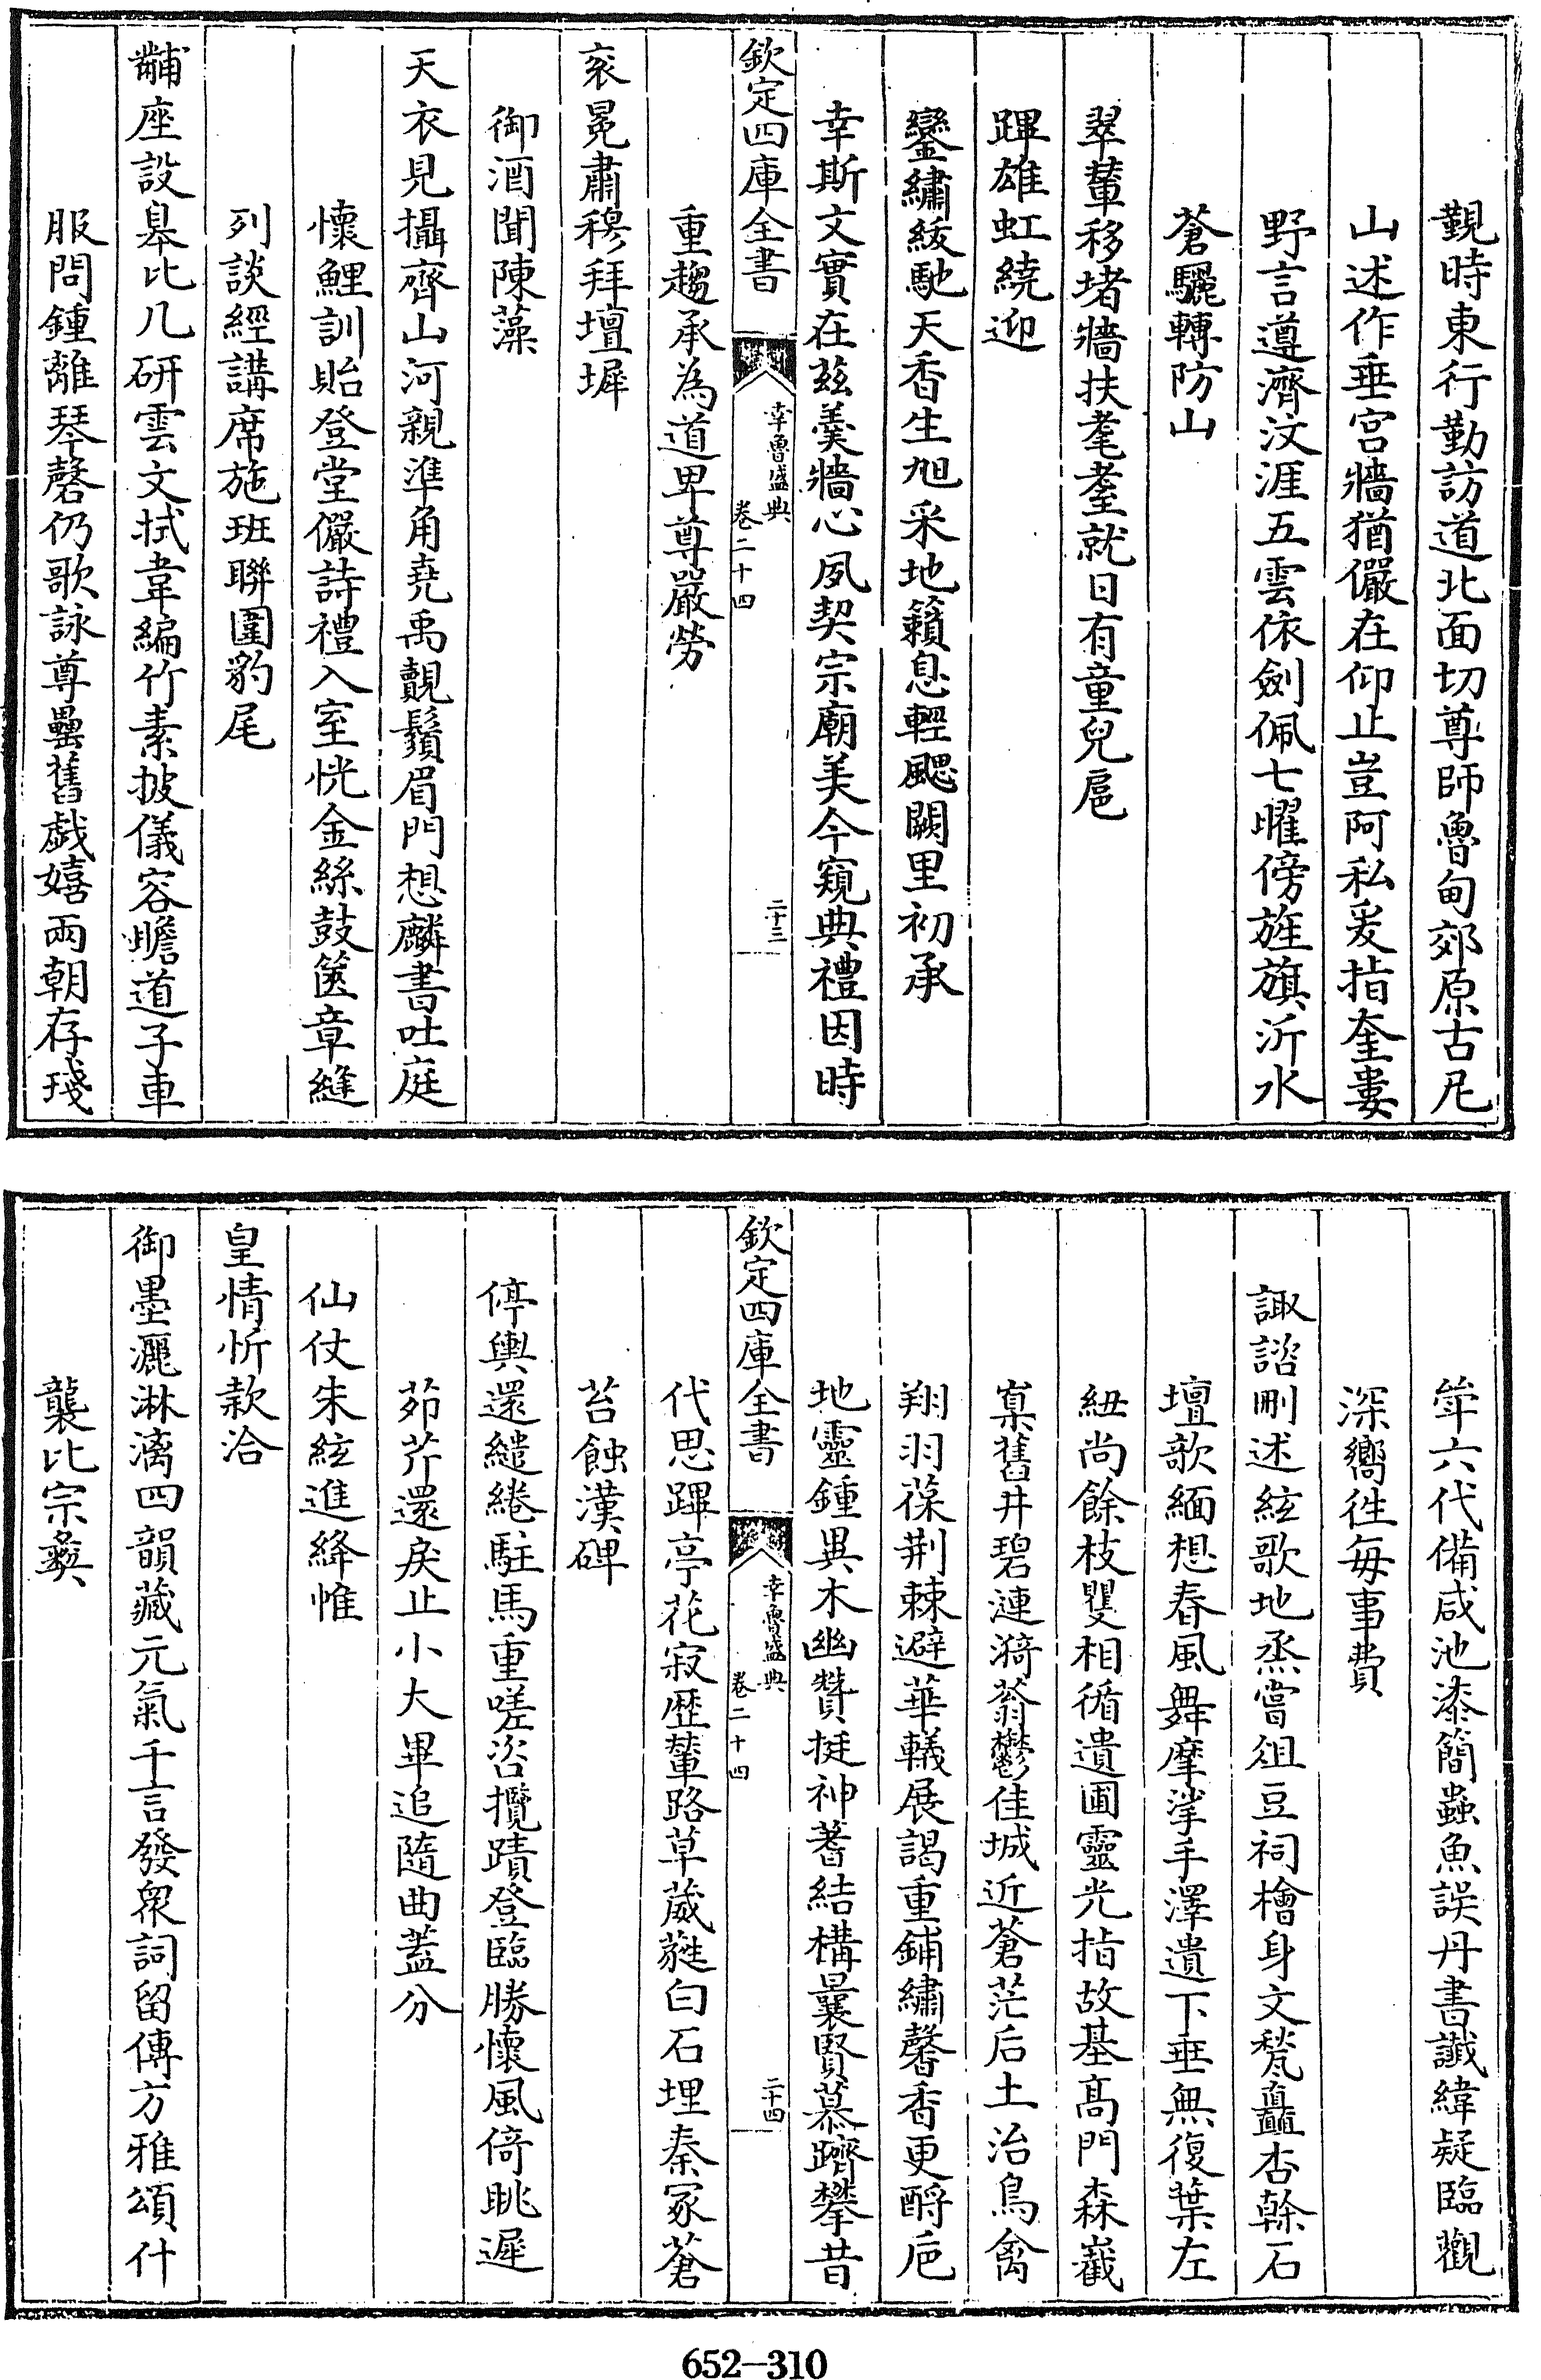 覲時東行勤訪道北面切尊師魯甸郊原古尼
山述作垂宫牆猶儼在仰止豈阿私爰指奎婁
野言遵濟汶涯五雲依劍佩七曜傍旌旗沂水
蒼驪轉防山
翠輦移堵牆扶耄耋就日有童兒扈
蹕雄虹繞迎
鑾繡紱馳天香生旭采地籟息輕颸闕里初承
幸斯文實在兹羮牆心夙契宗廟美今窺典禮因時
欽定四庫全書
幸魯盛典
卷二十四
二十三
重趨承為道卑尊嚴勞
衮冕肅穆拜壇墀
御酒聞陳藻
天衣見攝齊山河親準角堯禹覿鬚眉門想麟書吐庭
懷鯉訓貽登堂儼詩禮入室恍金絲鼓篋章縫
列談經講席施班聯圍豹尾
黼座設臯比几研雲文拭韋編竹素披儀容瞻道子車
服問鍾離琴磬仍歌詠尊罍舊戯嬉兩朝存琖
斝六代備咸池漆簡蟲魚誤丹書讖緯疑臨觀
深嚮徃毎事費
諏諮刪述絃歌地烝嘗俎豆祠檜身文甃矗杏榦石
壇欹緬想春風舞摩挲手澤遺下垂無復葉左
紐尚餘枝矍相循遺圃靈光指故基髙門森巀
嶪舊井碧連漪蓊鬱佳城近蒼茫后土治鳥禽
翔羽葆荆棘避華轙展謁重鋪繡馨香更酹巵
地靈鍾異木幽贊挺神蓍結構曩賢慕躋攀昔
欽定四庫全書
幸魯盛典
卷二十四
二十四
代思蹕亭花寂歴輦路草葳蕤白石埋秦冢蒼
苔蝕漢碑
停輿還繾綣駐馬重嗟咨攬蹟登臨勝懷風倚眺遲
茆芹還戾止小大畢追隨曲蓋分
仙仗朱絃進絳惟
皇情忻款洽
御墨灑淋漓四韻藏元氣千言發衆詞留傳方雅頌什
襲比宗彝
652—310